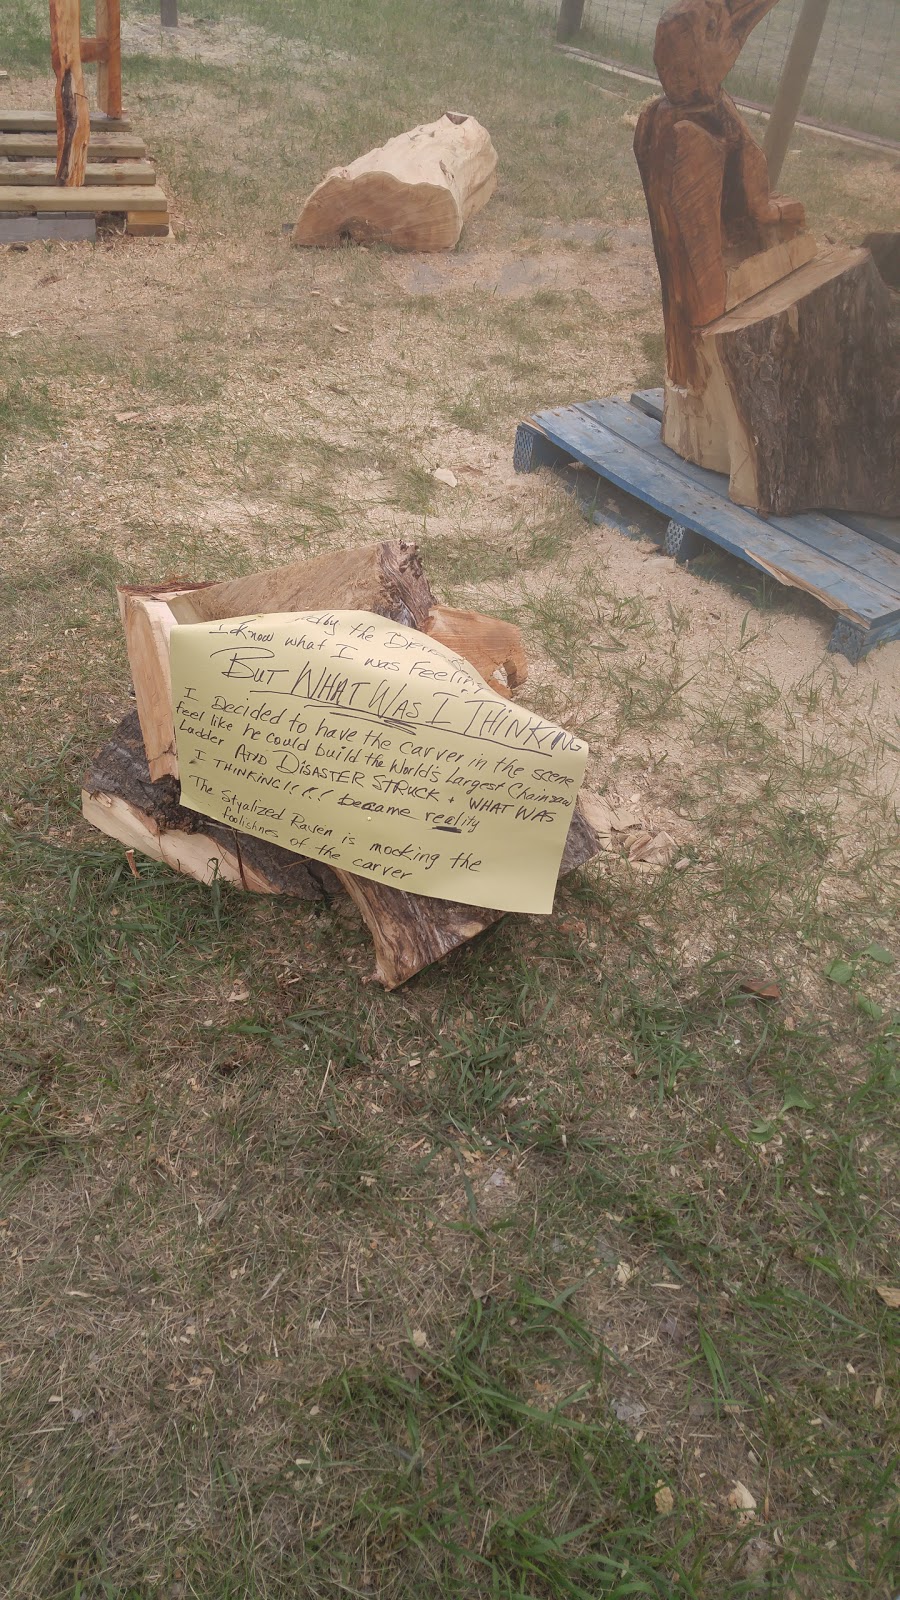 by the
I know what I was Feeling
BUT WHAT WAS I THINKING
I Decided to have the carver in the scene
feel like he could build the World's Largest Chainsaw
Ladder AND DISASTER STRUCK + WHAT WAS
I THINKING!!!! became reality
The Styalized Raven is mocking the
foolishnes of the carver